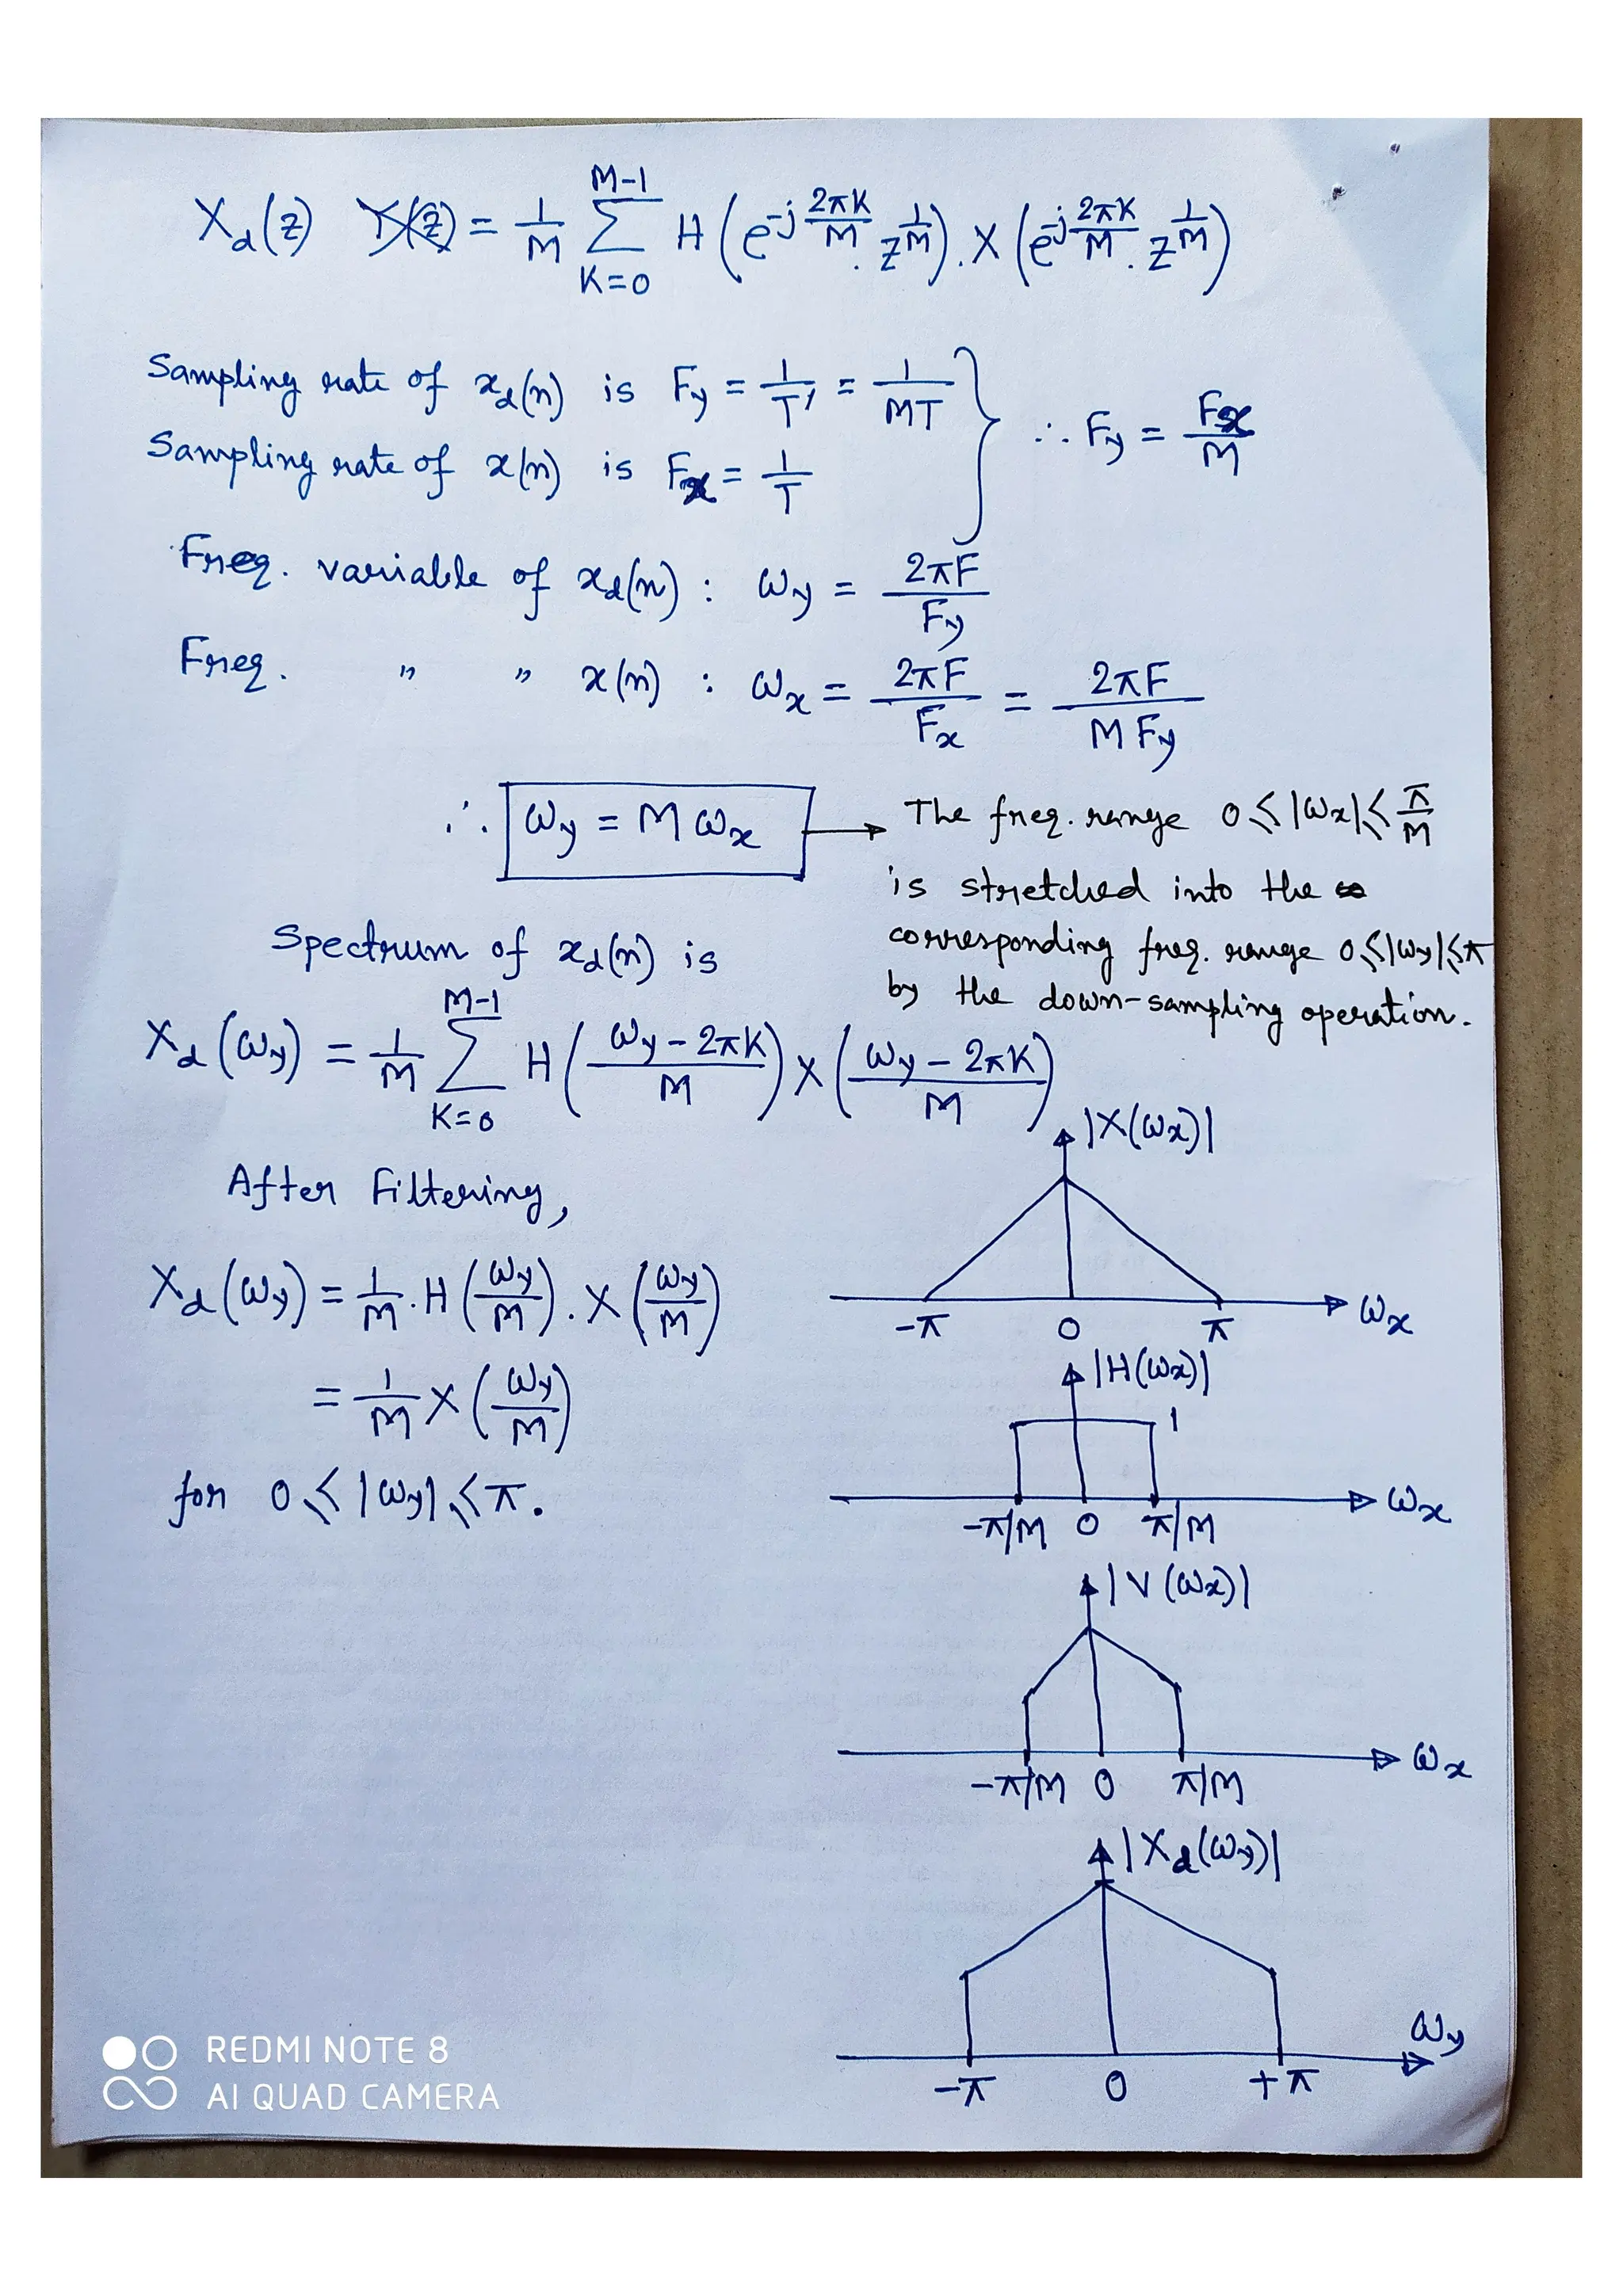 X_d(z) Y(z) = 1/M Σ_{K=0}^{M-1} H(e^{-j 2πK/M} . z^{1/M}) . X(e^{-j 2πK/M} . z^{1/M})
Sampling rate of x_d(n) is F_y = 1/T' = 1/MT
∴ F_y = F_x/M
Sampling rate of x(n) is F_x = 1/T
Freq. variable of x_d(n) : ω_y = 2πF/F_y
Freq. " " x(n) : ω_x = 2πF/F_x = 2πF/M F_y
∴ ω_y = M ω_x → The freq. range 0 ≤ |ω_x| ≤ π/M
is stretched into the
corresponding freq. range 0 ≤ |ω_y| ≤ π
by the down-sampling operation.
Spectrum of x_d(n) is
X_d(ω_y) = 1/M Σ_{K=0}^{M-1} H((ω_y - 2πK)/M) X((ω_y - 2πK)/M)
After Filtering,
X_d(ω_y) = 1/M . H(ω_y/M) . X(ω_y/M)
= 1/M X(ω_y/M)
for 0 ≤ |ω_y| ≤ π.
|X(ω_x)|
-π 0 π ω_x
|H(ω_x)|
1
-π/M 0 π/M ω_x
|V(ω_x)|
-π/M 0 π/M ω_x
|X_d(ω_y)|
-π 0 +π ω_y
REDMI NOTE 8
AI QUAD CAMERA